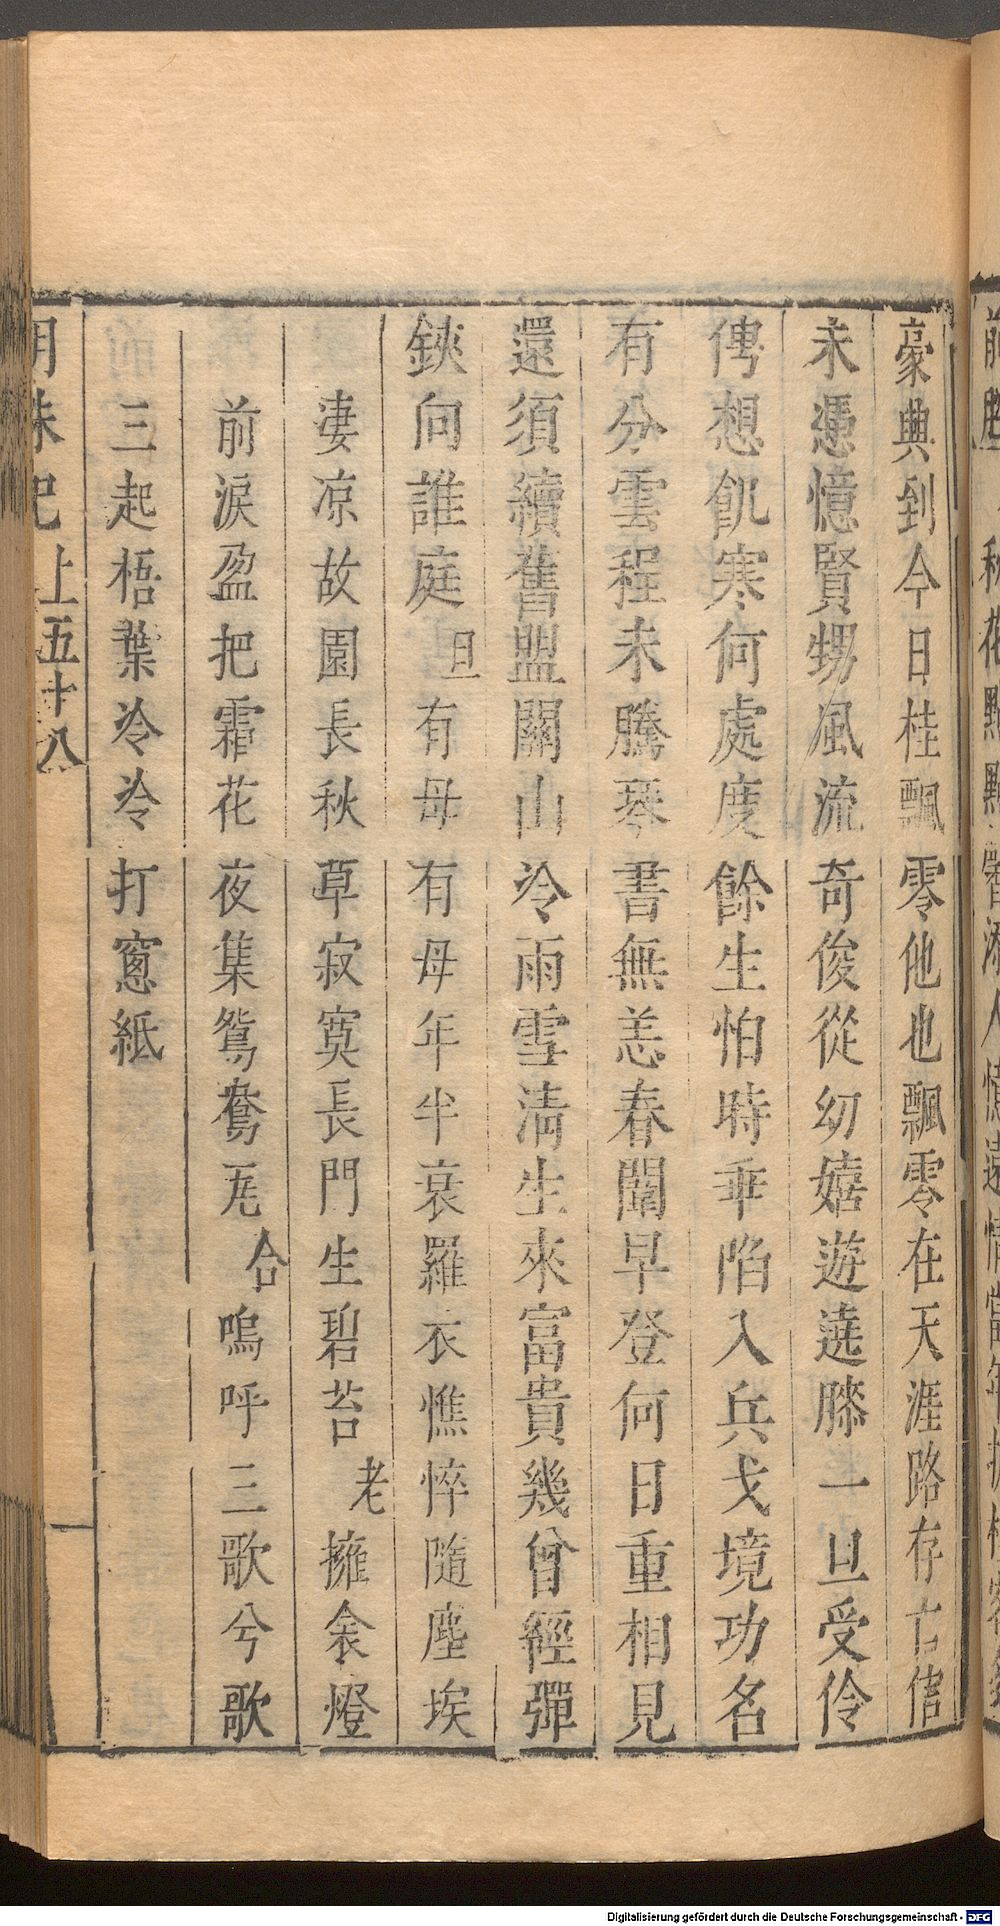 豪興到今日桂飄零他也飄零在天涯路存亡信
未憑憶賢甥風流奇俊從幼嬉遊遶膝一旦受伶
俜想飢寒何處度餘生怕時乖陷入兵戈境功名
有分雲程未騰琴書無恙春闈早登何日重相見
還須續舊盟關山冷雨雪淸生來富貴幾曾經彈
鋏向誰庭旦有母有母年半衰羅衣憔悴隨塵埃
淒凉故園長秋草寂寞長門生碧苔老擁衾燈
前淚盈把霜花夜集鴛鴦瓦合嗚呼三歌兮歌
三起梧葉冷冷打窻紙
明珠記上五十八
Digitalisierung gefördert durch die Deutsche Forschungsgemeinschaft - DFG